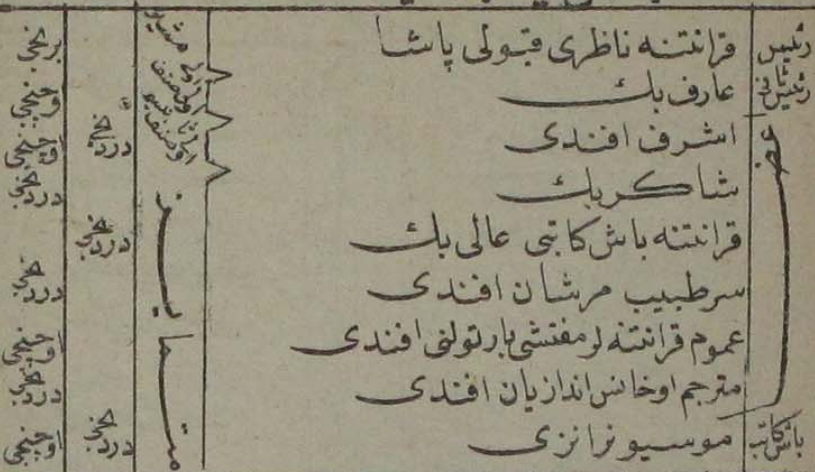 رئیس قرانتنه ناظری قبولی پاشا برنجی
رئیس ثانی عارف بك اوچنجی
اعضا اشرف افندی دردنجی اوچنجی
شاكر بك دردنجی
قرانتنه باش كاتبی عالی بك دردنجی
سرطبیب مرشان افندی دردنجی
عموم قرانتنه لر مفتشی بارتولنی افندی اوچنجی
مترجم اوخانس اندازیان افندی دردنجی
باش كاتب موسیو نرانزی دردنجی اوچنجی
متمایز